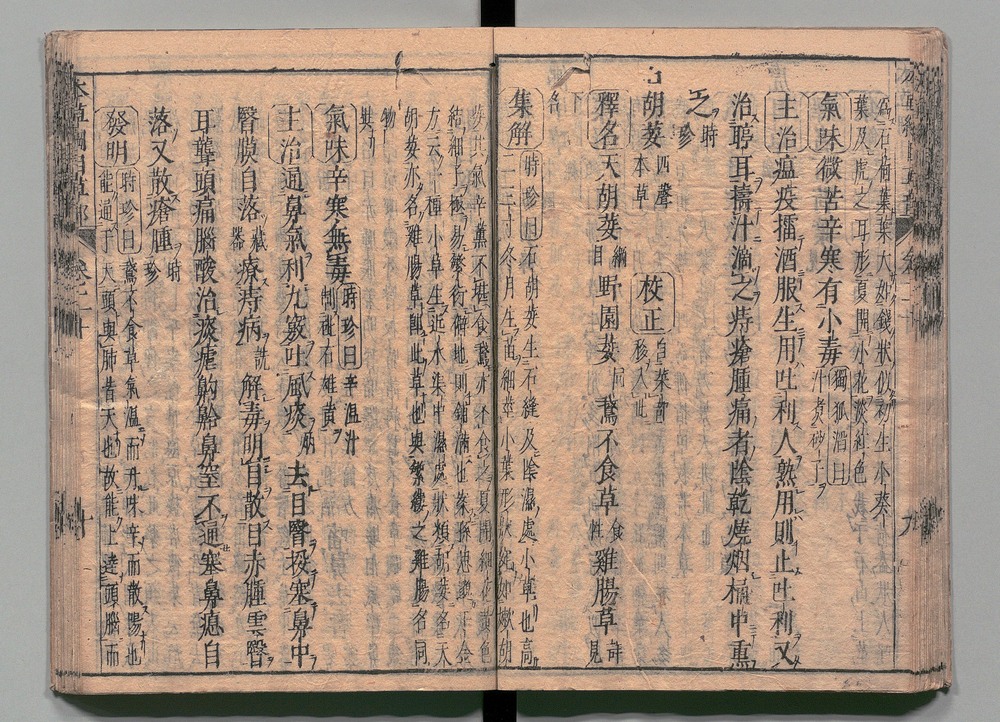 葉及虎之耳形夏開小花淡紅色
氣味微苦辛寒有小毒獨孤滔曰汁煮砂子
主治瘟疫擂酒服生用吐利人熟用則止吐利又
治聤耳擣汁滴之痔瘡腫痛者陰乾燒烟桶中熏
之時珍
胡荽四聲本草 校正自菜部移入此
釋名天胡荽綱目野園荽同鵞不食草食性雞腸草詳見
名下
集解時珍曰石胡荽生石縫及陰濕處小草也高
二三寸冬月生苗細莖小葉形狀宛如嫩胡
荽其氣辛薰不堪食鵞亦不食之夏開細花黃色
結細子極易繁衍僻地則鋪滿也案孫思邈千金
方云一種小草生近水渠中濕處狀類胡荽名天
胡荽亦名雞腸草即此草也與繁縷之雞腸名同
物
氣味辛寒無毒時珍曰辛溫汁制砒石雄黃
主治通鼻氣利九竅吐風痰炳去目瞖挼塞鼻中
瞖膜自落藏器療痔病詵解毒明目散目赤腫雲瞖
耳聾頭痛腦酸治痰瘧齁䶎鼻窒不通塞鼻瘜自
落又散瘡腫時珍
發明時珍曰鵞不食草氣溫而升味辛而散陽也
能通于天頭與肺皆天也故能上達頭腦而
本草綱目草部 卷二十